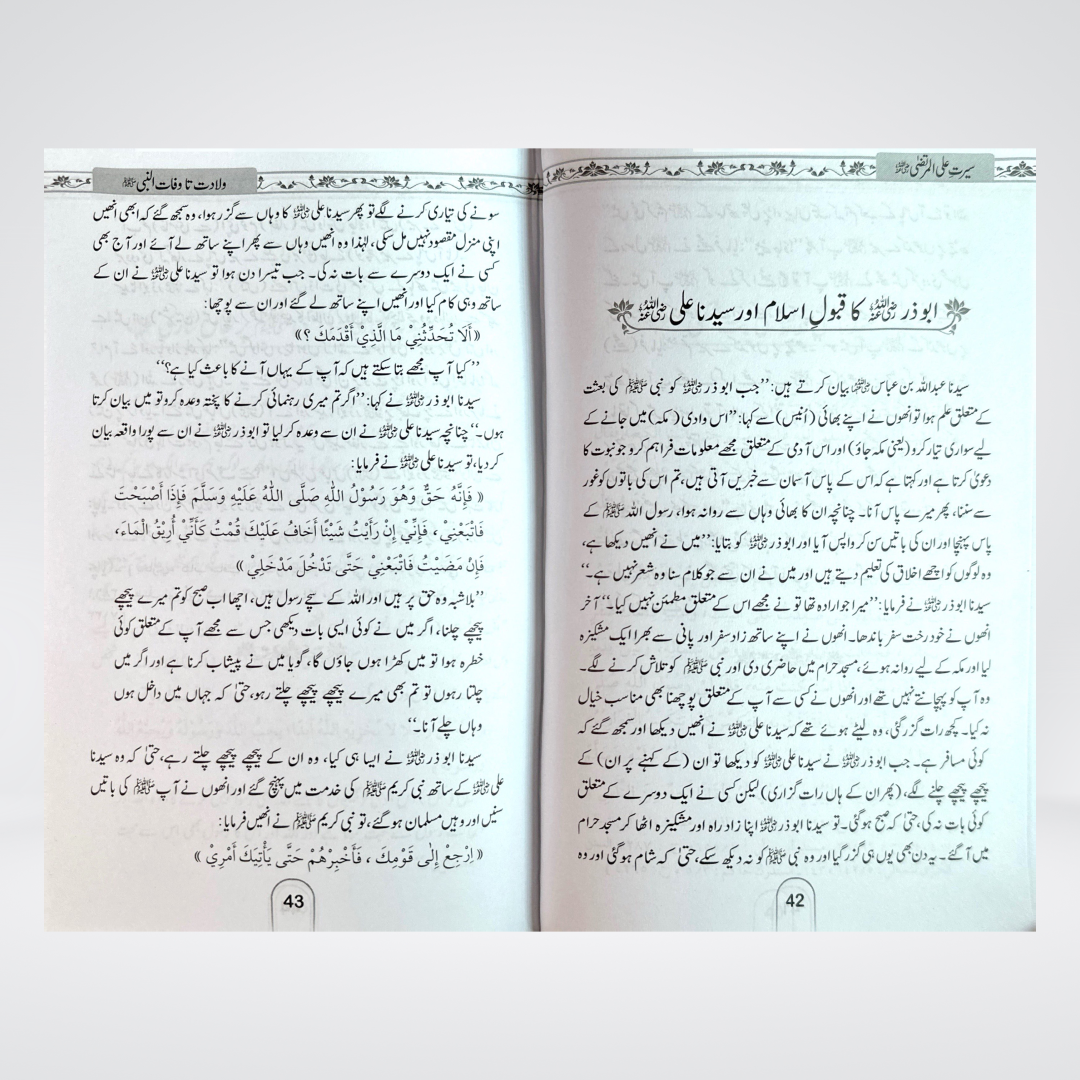 سیرتِ علی المرتضیٰ ﷜
ابوذر ﷜ کا قبولِ اسلام اور سیدنا علی ﷜
سیدنا عبداللہ بن عباس ﷠ بیان کرتے ہیں: ’’جب ابو ذر ﷜ کو نبی ﷺ کی بعثت
کے متعلق علم ہوا تو انھوں نے اپنے بھائی (اُنیس) سے کہا: ’’اس وادی (مکہ) میں جانے کے
لیے سواری تیار کرو (یعنی مکہ جاؤ) اور اس آدمی کے متعلق مجھے معلومات فراہم کرو جو نبوت کا
دعویٰ کرتا ہے اور کہتا ہے کہ اس کے پاس آسمان سے خبریں آتی ہیں، تم اس کی باتوں کو غور
سے سننا، پھر میرے پاس آنا۔ چنانچہ ان کا بھائی وہاں سے روانہ ہوا، رسول اللہ ﷺ کے
پاس پہنچا اور ان کی باتیں سن کر واپس آیا اور ابو ذر ﷜ کو بتایا: ’’میں نے انھیں دیکھا ہے،
وہ لوگوں کو اچھے اخلاق کی تعلیم دیتے ہیں اور میں نے ان سے جو کلام سنا وہ شعر نہیں ہے۔‘‘
سیدنا ابو ذر ﷜ نے فرمایا: ’’میرا جو ارادہ تھا تو نے مجھے اس کے متعلق مطمئن نہیں کیا۔‘‘ آخر
انھوں نے خود رخت سفر باندھا۔ انھوں نے اپنے ساتھ زاد سفر اور پانی سے بھرا ایک مشکیزہ
لیا اور مکہ کے لیے روانہ ہوئے، مسجد حرام میں حاضری دی اور نبی ﷺ کو تلاش کرنے لگے۔
وہ آپ کو پہچانتے نہیں تھے اور انھوں نے کسی سے آپ کے متعلق پوچھنا بھی مناسب خیال
نہ کیا۔ کچھ رات گزر گئی، وہ لیٹے ہوئے تھے کہ سیدنا علی ﷜ نے انھیں دیکھا اور سمجھ گئے کہ
کوئی مسافر ہے۔ جب ابو ذر ﷜ نے سیدنا علی ﷜ کو دیکھا تو ان (کے کہنے پر ان) کے
پیچھے پیچھے چلنے لگے، (پھر ان کے ہاں رات گزاری) لیکن کسی نے ایک دوسرے کے متعلق
کوئی بات نہ کی، حتیٰ کہ صبح ہو گئی۔ تو سیدنا ابو ذر ﷜ اپنا زاد راہ اور مشکیزہ اٹھا کر مسجد حرام
میں آ گئے۔ یہ دن بھی یوں ہی گزر گیا اور وہ نبی ﷺ کو نہ دیکھ سکے، حتیٰ کہ شام ہو گئی اور وہ
42
ولادت تا وفات النبی ﷺ
سونے کی تیاری کرنے لگے تو پھر سیدنا علی ﷜ کا وہاں سے گزر ہوا، وہ سمجھ گئے کہ ابھی انھیں
اپنی منزل مقصود نہیں مل سکی، لہٰذا وہ انھیں وہاں سے پھر اپنے ساتھ لے آئے اور آج بھی
کسی نے ایک دوسرے سے بات نہ کی۔ جب تیسرا دن ہوا تو سیدنا علی ﷜ نے ان کے
ساتھ وہی کام کیا اور انھیں اپنے ساتھ لے گئے اور ان سے پوچھا:
«أَلَا تُحَدِّثُنِيْ مَا الَّذِيْ أَقْدَمَكَ ؟»
’’کیا آپ مجھے بتا سکتے ہیں کہ آپ کے یہاں آنے کا باعث کیا ہے؟‘‘
سیدنا ابو ذر ﷜ نے کہا: ’’اگر تم میری رہنمائی کرنے کا پختہ وعدہ کرو تو میں بیان کرتا
ہوں۔‘‘ چنانچہ سیدنا علی ﷜ نے ان سے وعدہ کر لیا تو ابو ذر ﷜ نے ان سے پورا واقعہ بیان
کر دیا، تو سیدنا علی ﷜ نے فرمایا:
« فَإِنَّهُ حَقٌّ وَهُوَ رَسُوْلُ اللّٰهِ صَلَّى اللّٰهُ عَلَيْهِ وَسَلَّمَ فَإِذَا أَصْبَحْتَ
فَاتْبَعْنِيْ ، فَإِنِّيْ إِنْ رَأَيْتُ شَيْئًا أَخَافُ عَلَيْكَ قُمْتُ كَأَنِّيْ أُرِيْقُ الْمَاءَ،
فَإِنْ مَضَيْتُ فَاتْبَعْنِيْ حَتَّى تَدْخُلَ مَدْخَلِيْ »
’’بلاشبہ وہ حق پر ہیں اور اللہ کے سچے رسول ہیں، اچھا اب صبح کو تم میرے پیچھے
پیچھے چلنا، اگر میں نے کوئی ایسی بات دیکھی جس سے مجھے آپ کے متعلق کوئی
خطرہ ہوا تو میں کھڑا ہوں جاؤں گا، گویا میں نے پیشاب کرنا ہے اور اگر میں
چلتا رہوں تو تم بھی میرے پیچھے پیچھے چلتے رہو، حتیٰ کہ جہاں میں داخل ہوں
وہاں چلے آنا۔‘‘
سیدنا ابو ذر ﷜ نے ایسا ہی کیا، وہ ان کے پیچھے پیچھے چلتے رہے، حتیٰ کہ وہ سیدنا
علی ﷜ کے ساتھ نبی کریم ﷺ کی خدمت میں پہنچ گئے اور انھوں نے آپ ﷺ کی باتیں
سنیں اور وہیں مسلمان ہو گئے، تو نبی کریم ﷺ نے انھیں فرمایا:
« اِرْجِعْ إِلٰى قَوْمِكَ ، فَأَخْبِرْهُمْ حَتَّى يَأْتِيَكَ أَمْرِيْ »
43